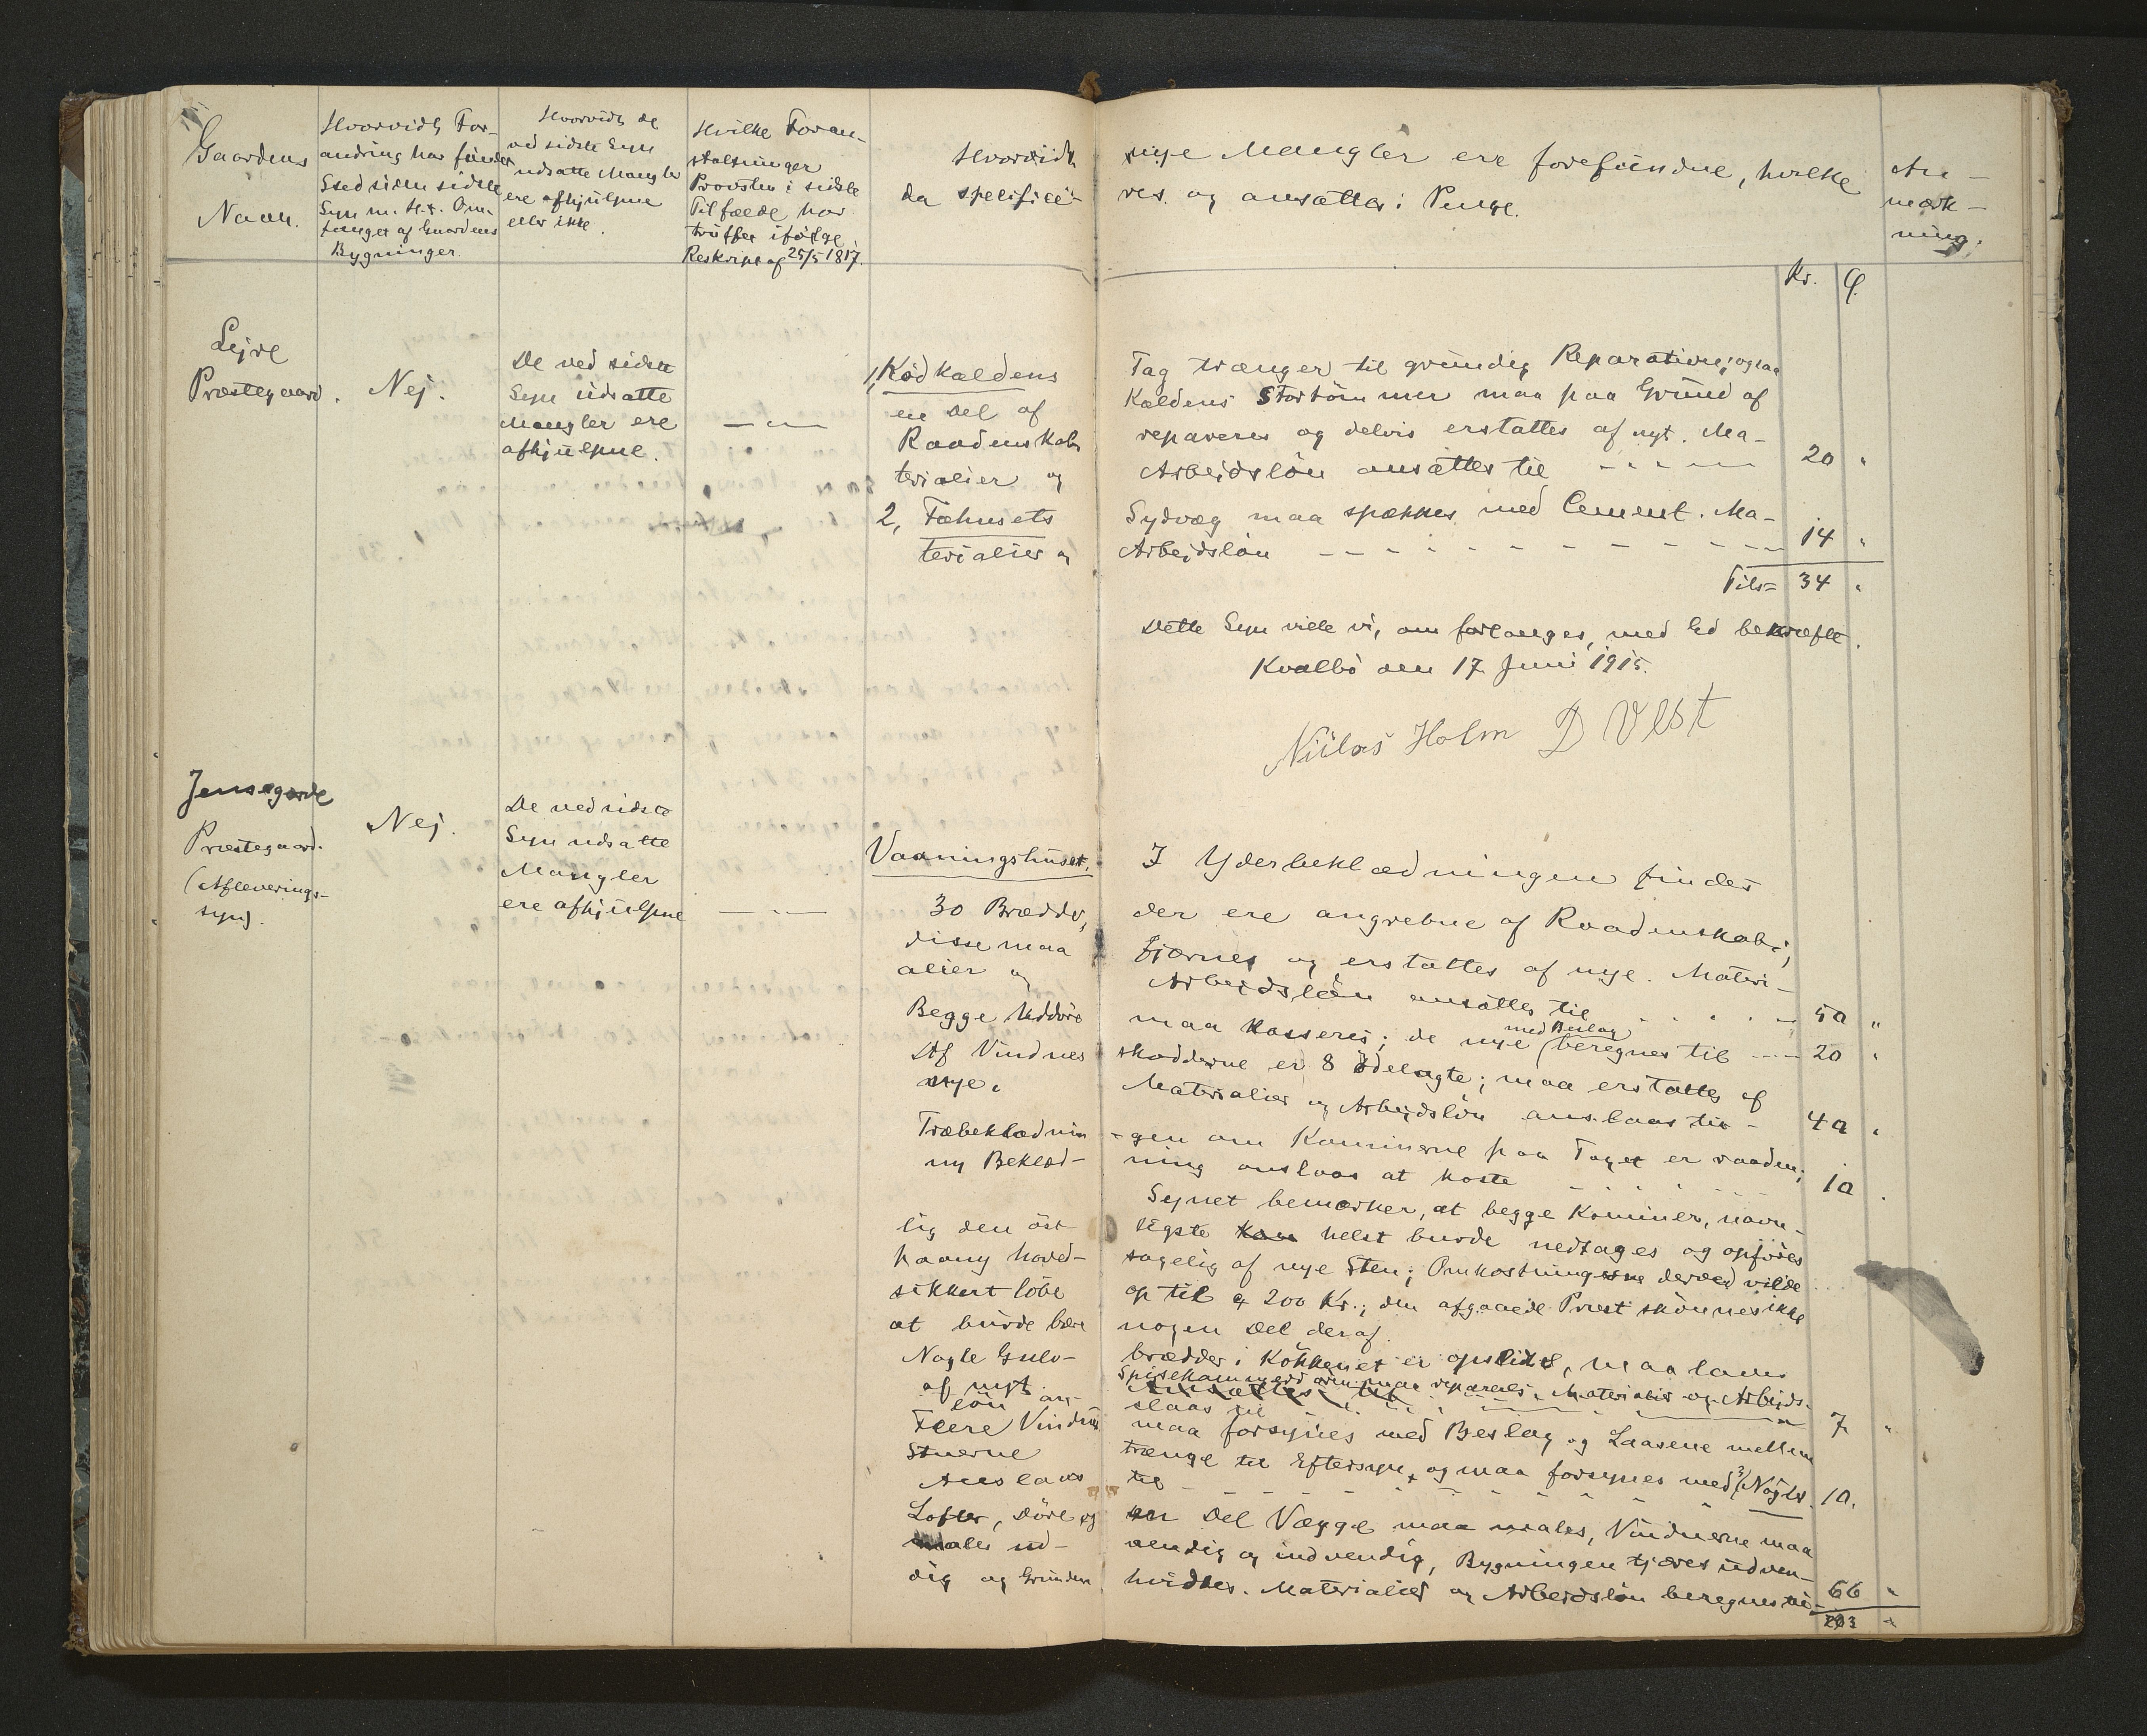 Gaardens
Navn.
Hvorvidt For-
andring har fundet
Sted siden sidste
Syn m. H. t. Om-
fanget af Gaardens
Bygninger.
Hvorvidt de
ved sidste Syn
udsatte Mangler
ere afhjulpne
eller ikke.
Hvilke Foran-
staltninger
Provsten i sidste
Tilfælde har
truffet ifölge
Reskript af 25/5 1817.
Hvorvidt nye Mangler ere forefundne, hvilke
da specifice- res. og ansættes i Penge.
An-
mærk-
ning.
Kr. Ø.
Lejre
Præstegaard.
Nej.
De ved sidste
Syn udsatte
Mangler ere
afhjulpne.
1, Kødkældens Tag trænger til grundig Reparation; ogsaa
en Del af Kældens Stortömmer maa paa Grund af
Raadenskab repareres og delvis erstattes af nyt. Ma-
terialier og Arbejdslön ansættes til 20 "
2, Fæhusets Sydvæg maa spækkes med Cement. Ma-
terialier og Arbejdslön 14 "
Tils= 34 "
Dette Syn ville vi, om forlanges, med Ed bekræfte.
Kvalbö den 17 Juni 1915.
Niclas Holm D Vest
Jensegærde
Præstegaard.
(Afleverings-
syn).
Nej.
De ved sidste
Syn udsatte
Mangler
ere afhjulpne
Vaaningshuset. I Yderbeklædningen findes
30 Brædder, der ere angrebne af Raadenskab;
disse maa fjærnes og erstattes af nye. Materi-
alier og Arbejdslön ansættes til 50 "
Begge Uddöre maa kasseres; de nye (med Beslag) beregnes til 20 "
Af Vindues skodderne er 8 ödelagte; maa erstattes af
nye. Materialier og Arbejdslön anslaas til 40 "
Træbeklædnin -gen om Kaminerne paa Taget er raaden;
ny Beklæd- ning anslaas at koste 10
Synet bemærker, at begge Kaminer, navn-
lig den öst ligste helst burde nedtages og opföres
paany hoved- sagelig af nye Sten; Omkostningerne derved vilde
sikkert löbe op til 200 Kr.; den afgaaede Præst skönnes ikke
at burde bære nogen Del deraf.
Nogle Gulv- brædder i Kökkenet er opslidt, maa laves
af nyt Spisekammerdören maa repareres. Materialier og Arbejds-
lön an- slaas til 7 "
Flere Vinduer maa forsynes med Beslag og Laasene mellem
Stuerne trænge til Eftersyn, og maa forsynes med 3 Nögler.
Anslaas til 10.
Lofter, Döre og en Del Vægge maa males, Vinduerne maa
males ud- vendig og indvendig, Bygningen tjæres udven-
dig og Grunden hvidtes. Materialier og Arbejdslön beregnes til 66 "
203 "